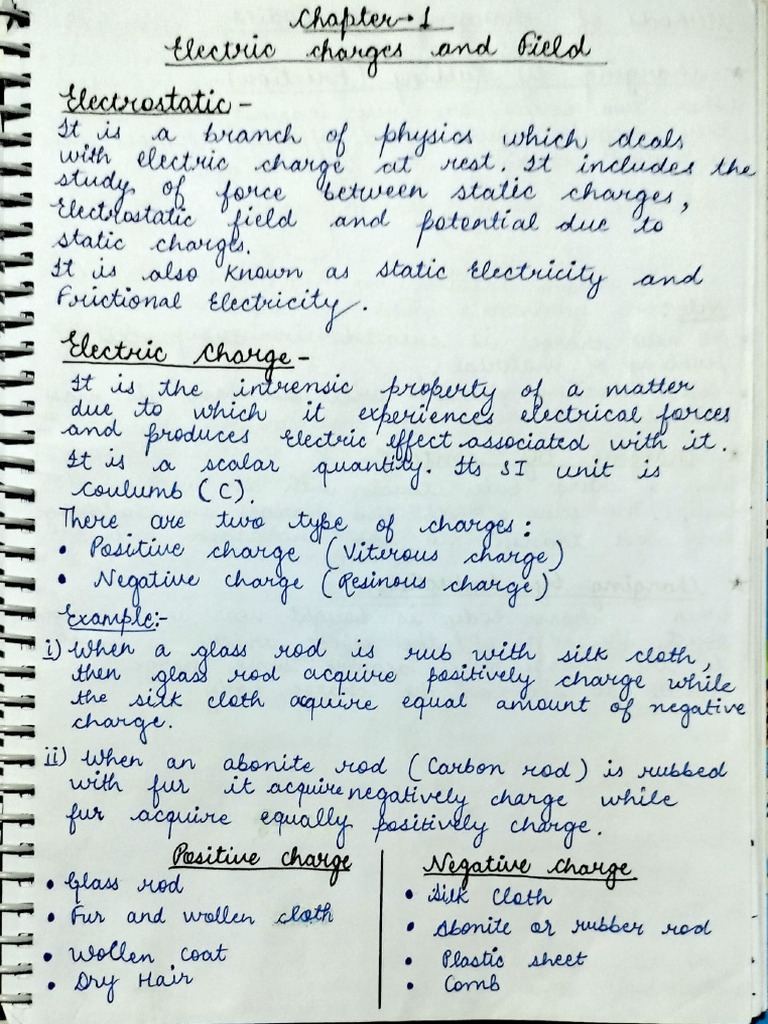 Chapter-1
Electric charges and Field
Electrostatic -
It is a branch of physics which deals
with electric charge at rest. It includes the
study of force between static charges,
Electrostatic field and potential due to
static charges.
It is also known as static Electricity and
Frictional Electricity.
Electric Charge -
It is the intrensic property of a matter
due to which it experiences electrical forces
and produces Electric effect associated with it.
It is a scalar quantity. Its SI unit is
coulumb (C).
There are two type of charges:
• Positive charge (Viterous charge)
• Negative charge (Resinous charge)
Example:-
i) When a glass rod is rub with silk cloth,
then glass rod acquire positively charge while
the silk cloth aquire equal amount of negative
charge.
ii) When an abonite rod (Carbon rod) is rubbed
with fur it acquire negatively charge while
fur acquire equally positively charge.
Positive charge
• Glass rod
• Fur and wollen cloth
• Wollen coat
• Dry Hair
Negative charge
• Silk Cloth
• Abonite or rubber rod
• Plastic sheet
• Comb